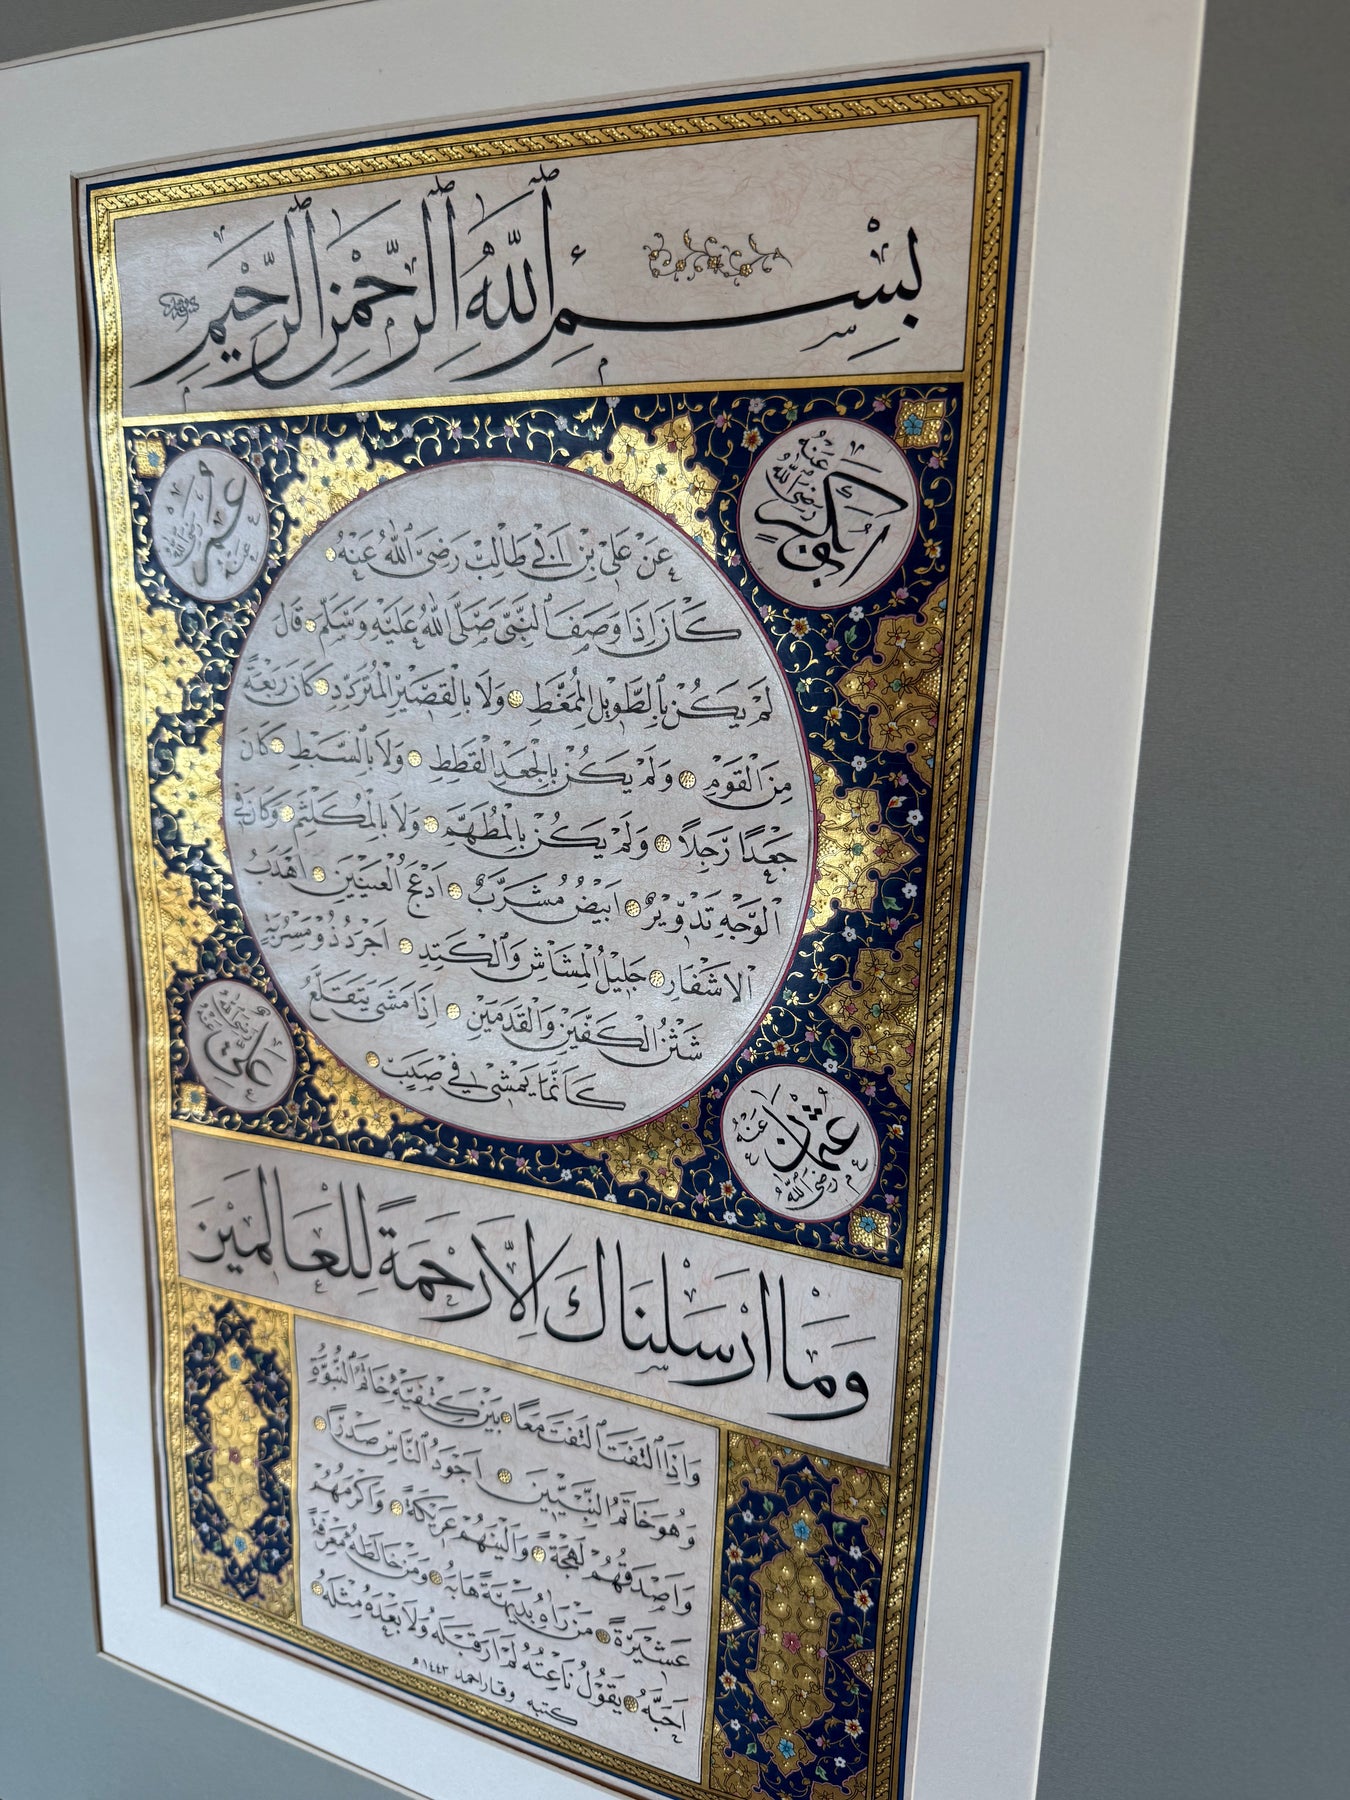 بِسْمِ ٱللَّهِ ٱلرَّحْمٰنِ ٱلرَّحِيمِ
أبو بكر رضي الله عنه
عمر رضي الله عنه
عَنْ عَلِيِّ بْنِ اَبِي طَالِبٍ رَضِيَ اللهُ عَنْهُ
كَانَ اِذَا وَصَفَ النَّبِيَّ صَلَّى اللهُ عَلَيْهِ وَسَلَّمَ قَالَ
لَمْ يَكُنْ بِالطَّوِيلِ الْمُمَّغِطِ وَلَا بِالْقَصِيرِ الْمُتَرَدِّدِ كَانَ رَبْعَةً
مِنَ الْقَوْمِ وَلَمْ يَكُنْ بِالْجَعْدِ الْقَطَطِ وَلَا بِالسَّبْطِ كَانَ
جَعْدًا رَجِلًا وَلَمْ يَكُنْ بِالْمُطَهَّمِ وَلَا بِالْمُكَلْثَمِ وَكَانَ فِي
الْوَجْهِ تَدْوِيرٌ اَبْيَضُ مُشَرَّبٌ اَدْعَجُ الْعَيْنَيْنِ اَهْدَبُ
الْاَشْفَارِ جَلِيلُ الْمُشَاشِ وَالْكَتَدِ اَجْرَدُ ذُو مَسْرُبَةٍ
شَثْنُ الْكَفَّيْنِ وَالْقَدَمَيْنِ اِذَا مَشَى يَتَقَلَّعُ
كَاَنَّمَا يَمْشِي فِي صَبَبٍ
عثمان رضي الله عنه
علي رضي الله عنه
وَمَا اَرْسَلْنَاكَ اِلَّا رَحْمَةً لِلْعَالَمِينَ
وَاِذَا الْتَفَتَ الْتَفَتَ مَعًا بَيْنَ كَتِفَيْهِ خَاتَمُ النُّبُوَّةِ
وَهُوَ خَاتَمُ النَّبِيِّينَ اَجْوَدُ النَّاسِ صَدْرًا
وَاَصْدَقُهُمْ لَهْجَةً وَاَلْيَنُهُمْ عَرِيكَةً وَاَكْرَمُهُمْ
عَشِيرَةً مَنْ رَاٰهُ بَدِيهَةً هَابَهُ وَمَنْ خَالَطَهُ مَعْرِفَةً
اَحَبَّهُ يَقُولُ نَاعِتُهُ لَمْ اَرَ قَبْلَهُ وَلَا بَعْدَهُ مِثْلَهُ
كتبه وقار احمد ١٤٤٣ ه